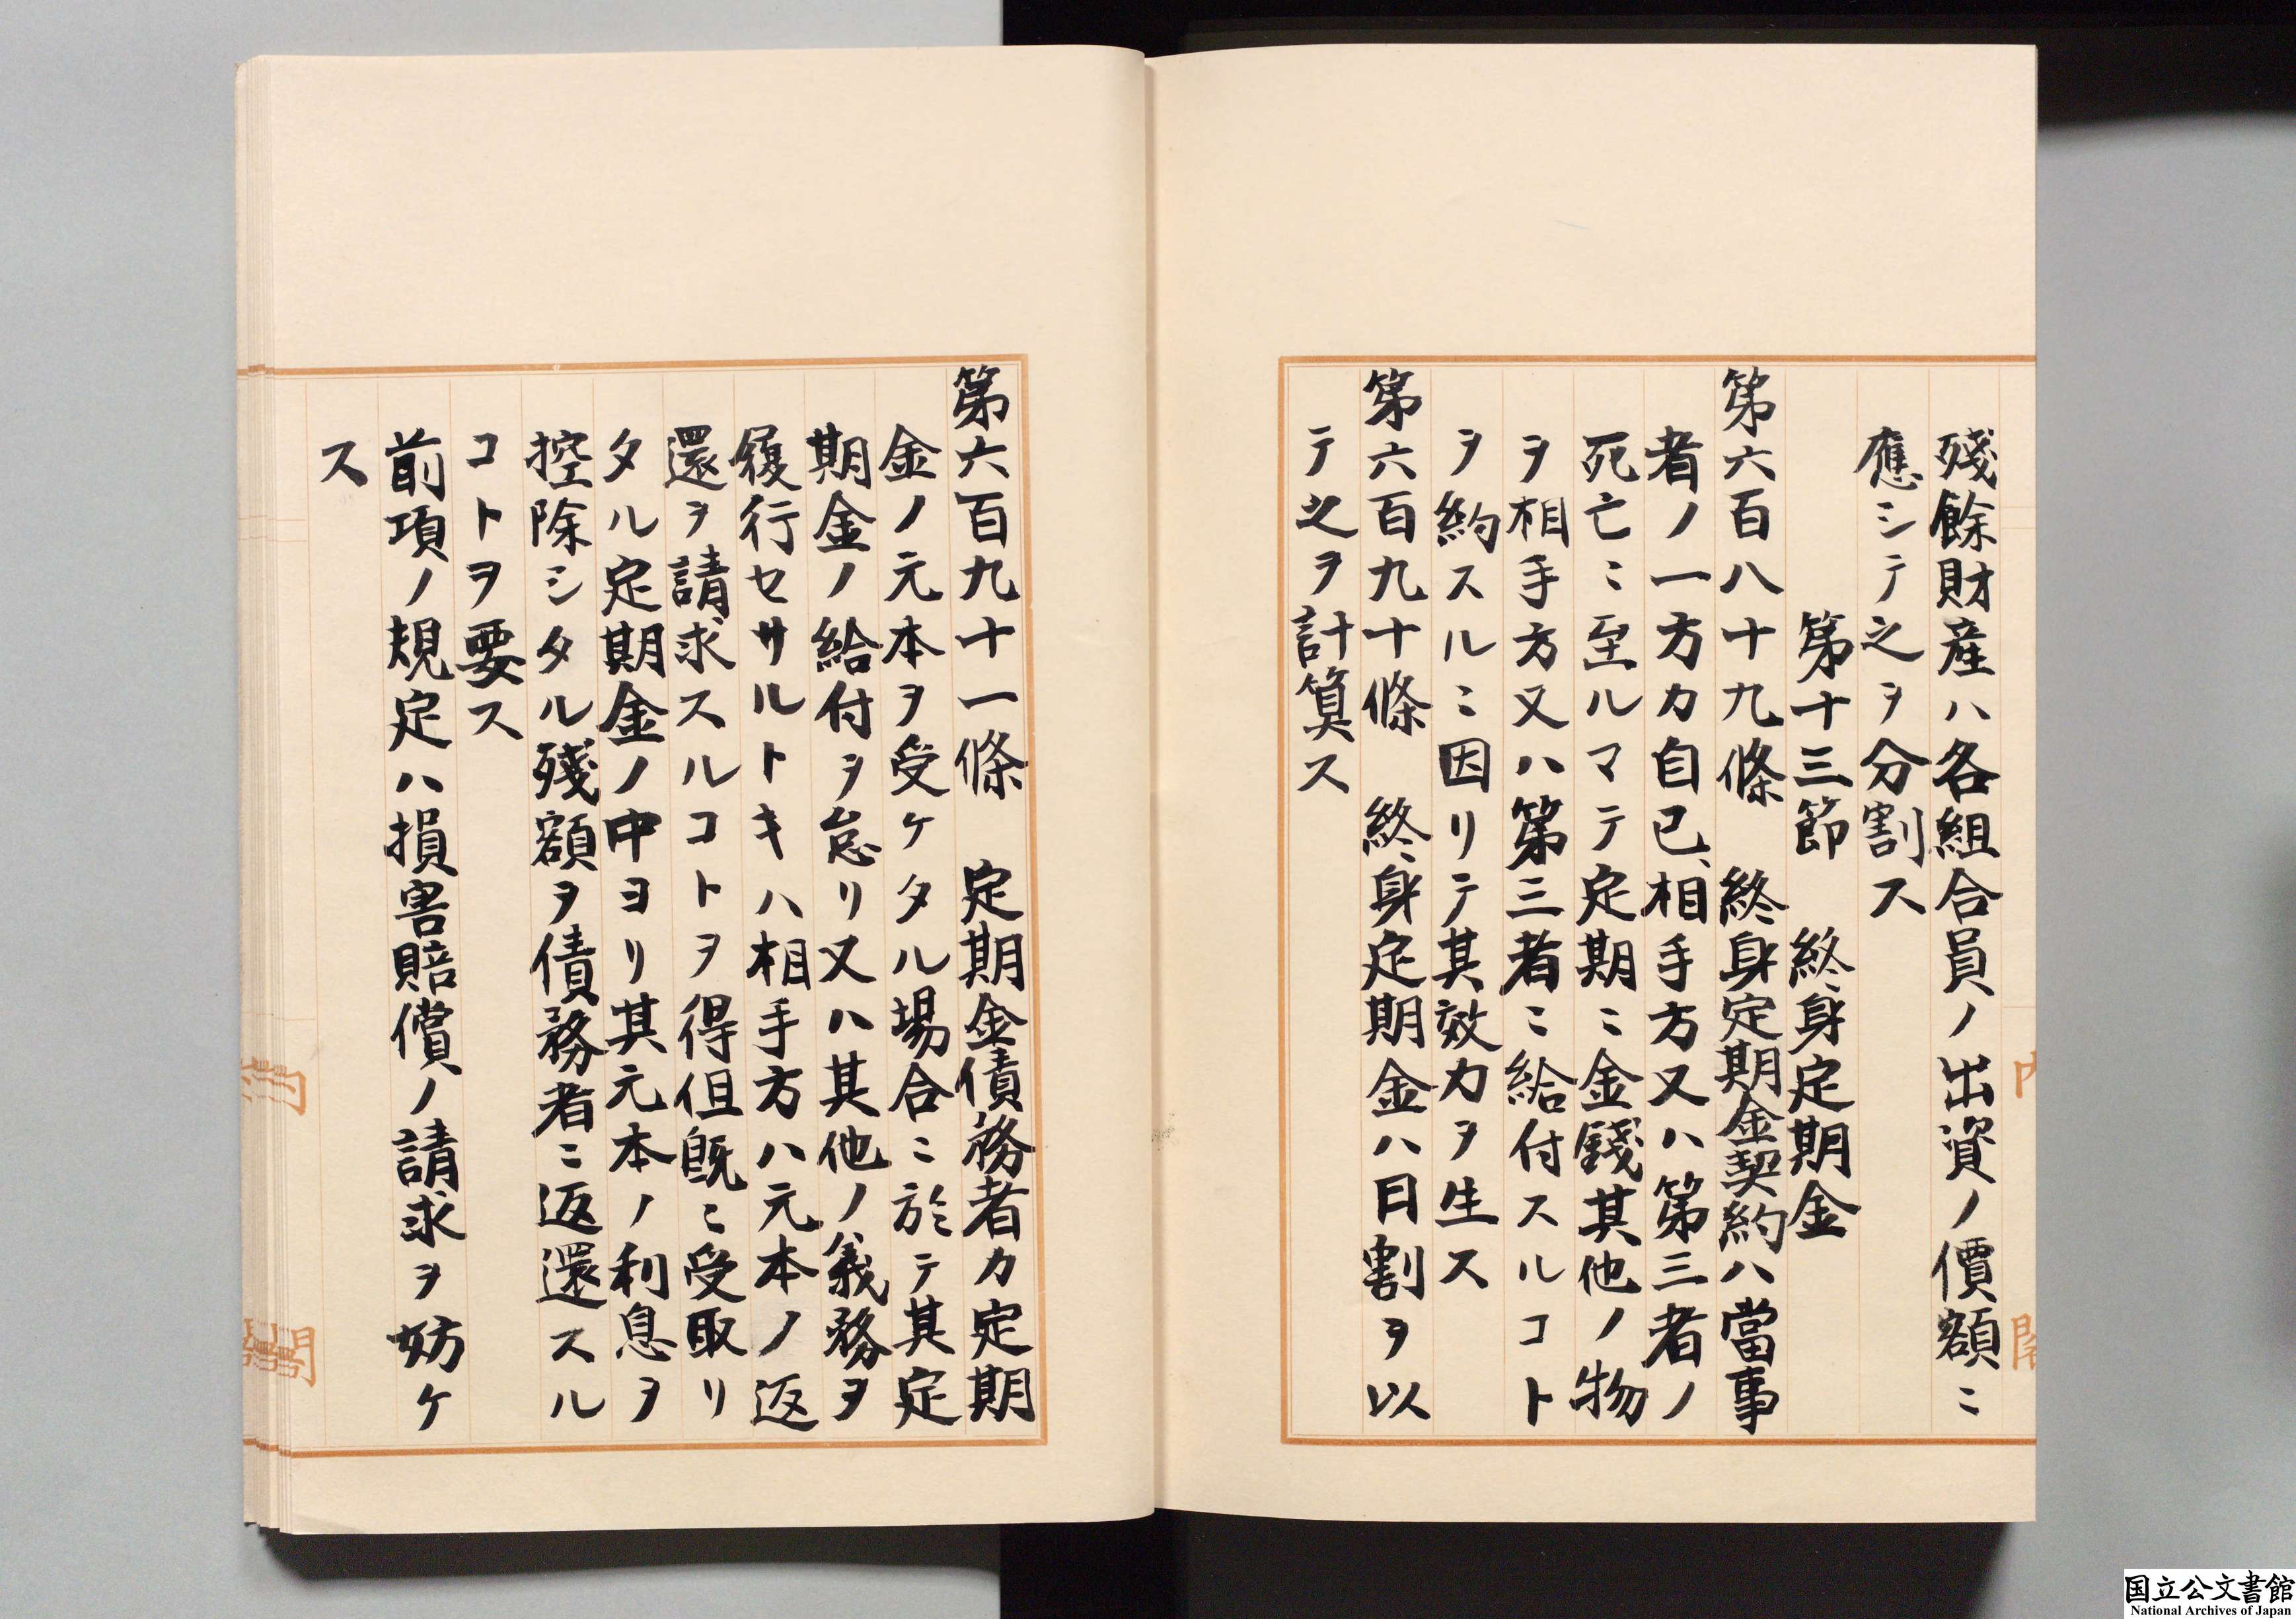 殘餘財産ハ各組合員ノ出資ノ價額ニ
應シテ之ヲ分割ス
第十三節　終身定期金
第六百八十九條　終身定期金契約ハ當事
者ノ一方カ自己、相手方又ハ第三者ノ
死亡ニ至ルマテ定期ニ金錢其他ノ物
ヲ相手方又ハ第三者ニ給付スルコト
ヲ約スルニ因リテ其效力ヲ生ス
第六百九十條　終身定期金ハ日割ヲ以
テ之ヲ計算ス
第六百九十一條　定期金債務者カ定期
金ノ元本ヲ受ケタル場合ニ於テ其定
期金ノ給付ヲ怠リ又ハ其他ノ義務ヲ
履行セサルトキハ相手方ハ元本ノ返
還ヲ請求スルコトヲ得但既ニ受取リ
タル定期金ノ中ヨリ其元本ノ利息ヲ
控除シタル殘額ヲ債務者ニ返還スル
コトヲ要ス
前項ノ規定ハ損害賠償ノ請求ヲ妨ケ
ス
内閣
国立公文書館
National Archives of Japan